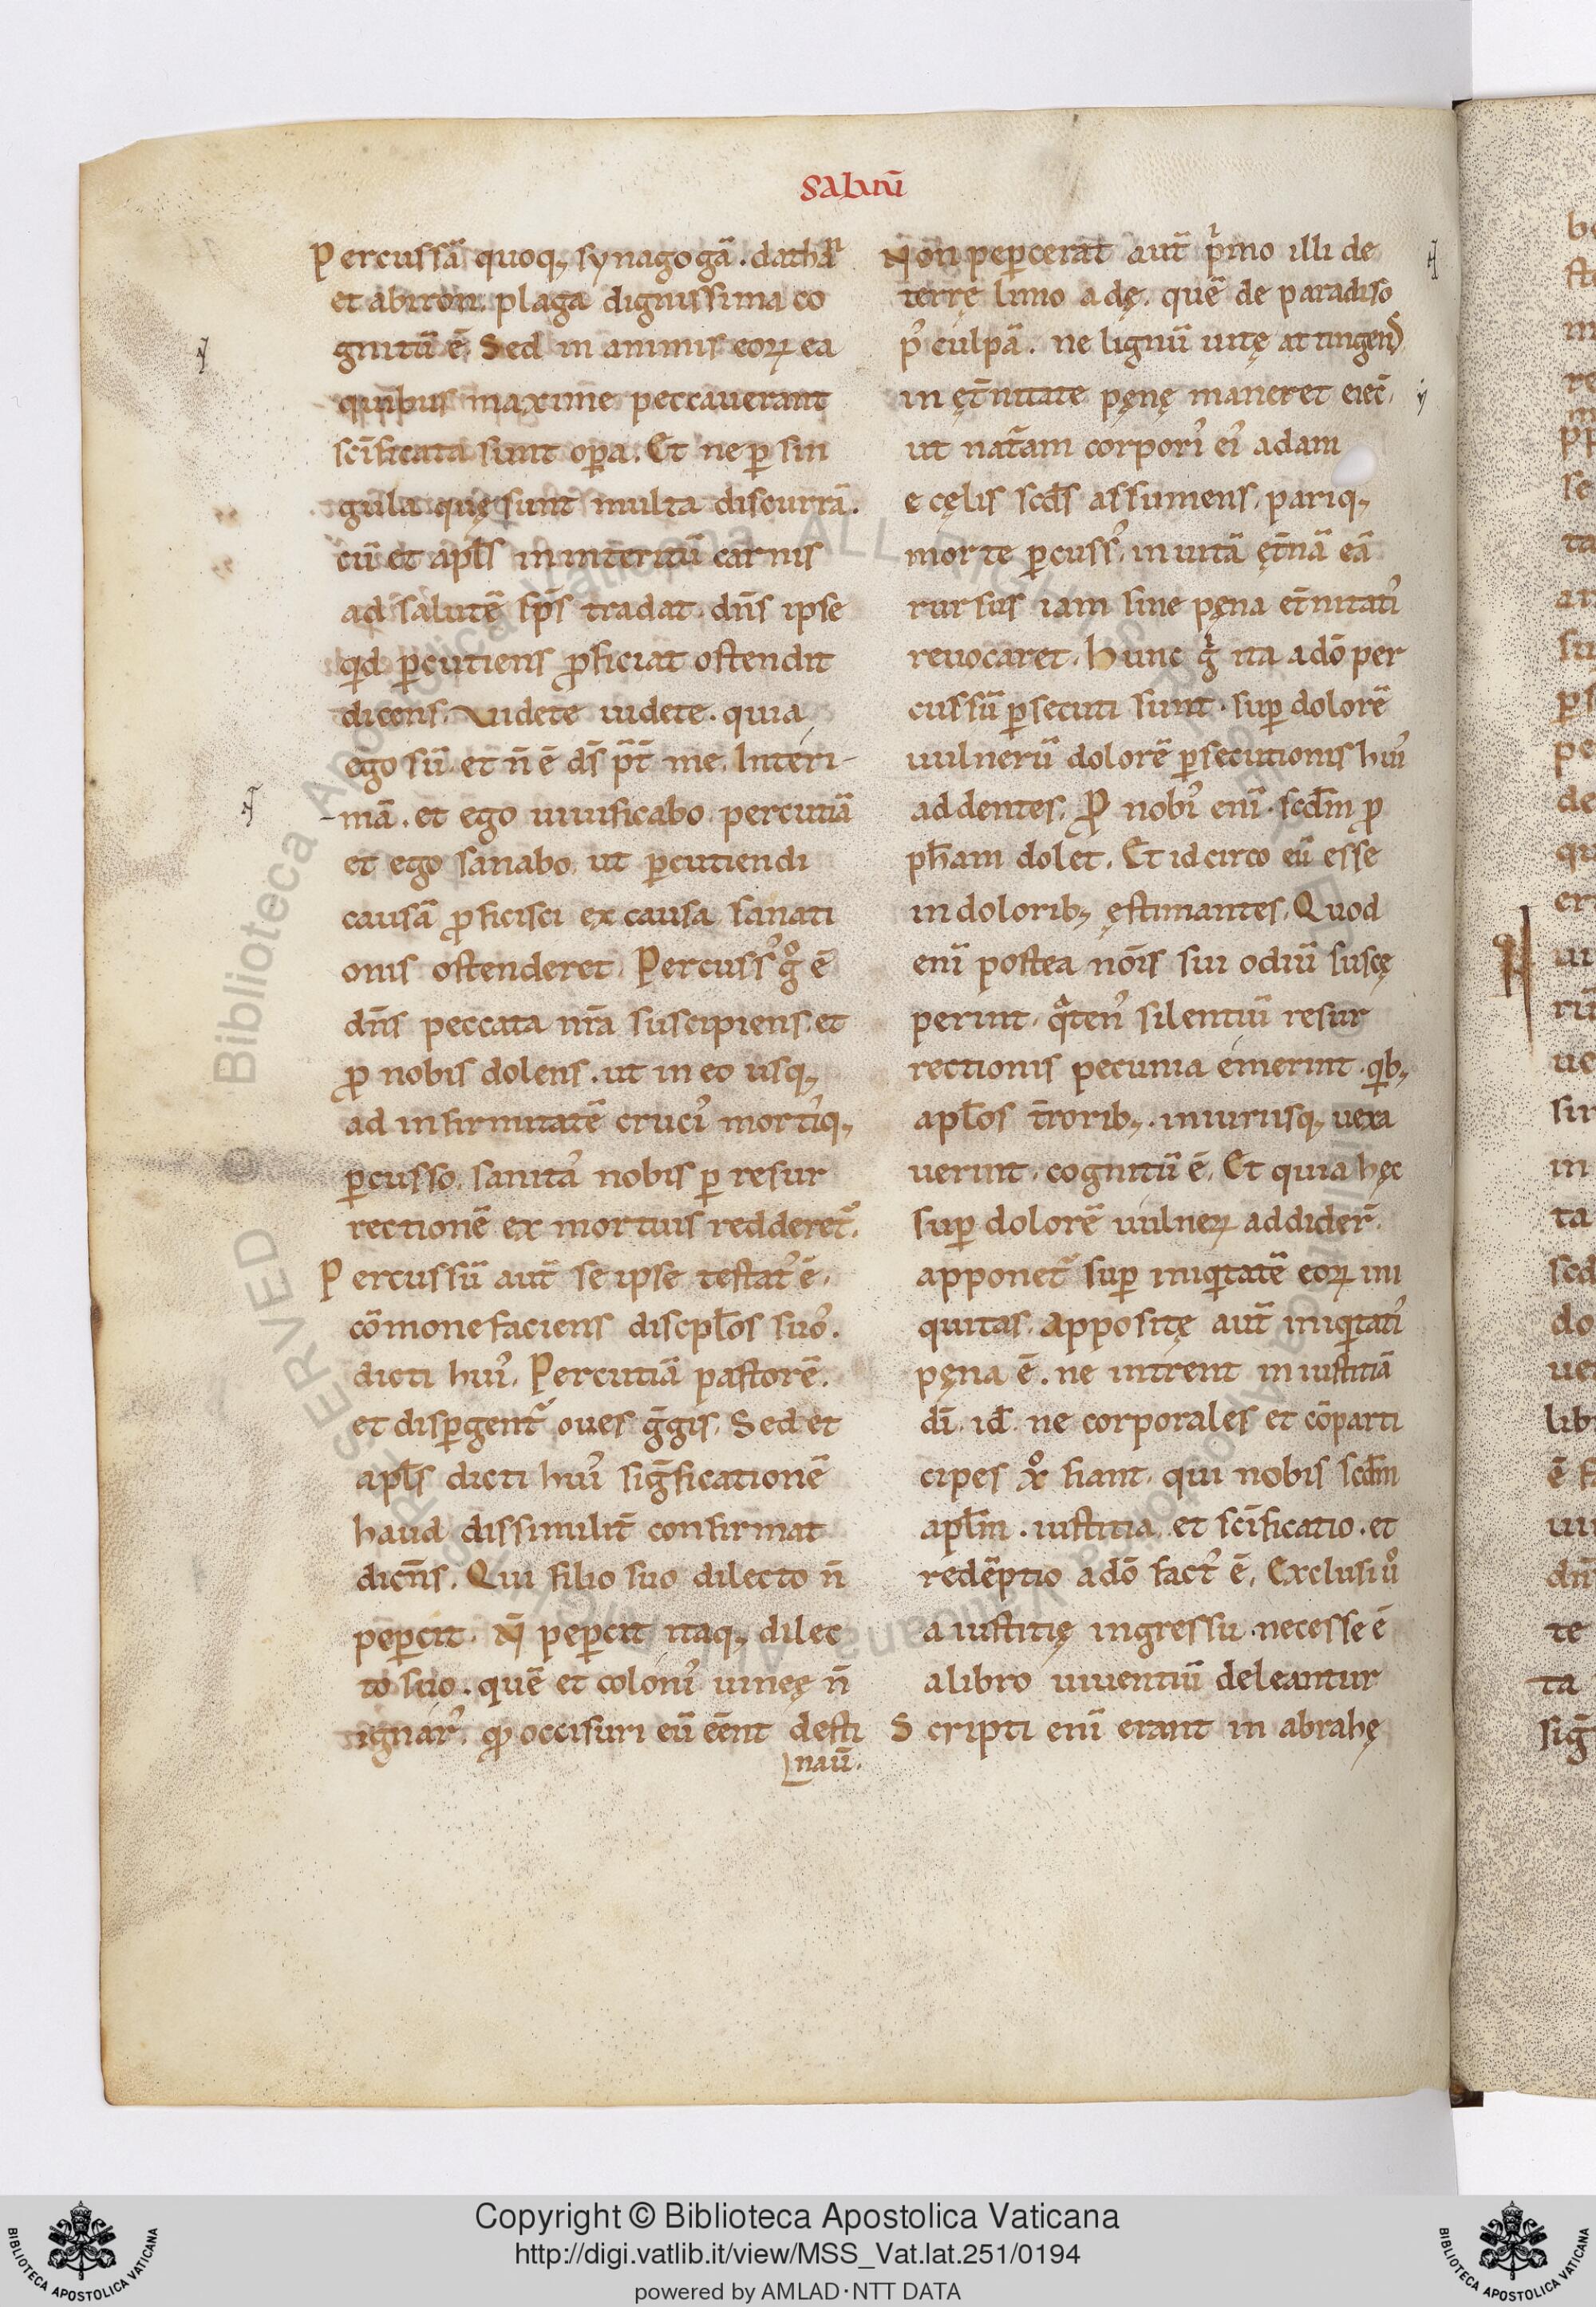 Percussā quoq; synagogā. dathan
et abiron. plaga dignissima co
gnitū ē. Sed in animis eoꝝ ea
quibus maxime peccauerant
sc̄ificata sunt oꝑa. Et ne ꝑ sin
gula quę sunt multa discurrā.
cū et apl̄s in interitū carnis
ad salutē sp̄s tradat. dn̄s ipse
qid ꝑcutiens ꝓficiat ostendit
dicens. Videte uidete. quia
ego sū. et n̄ ē ds̄ p̄t̄ me. Interi-
-mā. et ego uiuificabo. percutiā
et ego sanabo. ut ꝑcutiendi
causā ꝓficisci ex causa sanati
onis ostenderet. Percuss᾽ gͦ ē
dn̄s peccata nr̄a suscipiens. et
ꝓ nobis dolens. ut in eo usq;
ad infirmitatē cruci᾽ morti᾽q;
ꝑcusso. sanita᾽ nobis ꝑ resur
rectionē ex mortuis redderet᾽.
Percussū aut̄ se ipse testat᾽ ē.
cōmonefaciens discipl̄os suo᾽.
dicti hui᾽. Percutiā pastorē.
et disꝑgent᾽ oues ḡgis. Sed et
apl̄s dicti hui᾽ siḡficationē
haud dissimilit̄ confirmat
dicn̄s. Qui filio suo dilecto n̄
peꝑcit. N̄ peꝑcit itaq; dilec
to suo. quē et coloni᾽ uineę n̄
ignar᾽. qđ occisuri eū eēnt desti
naū.
Non peꝑcerat aut̄ pⁱmo illi de
terrę limo adę. quē de paradiso
p᾽ culpā. ne lignū uitę attingend
in ęt̄nitate pęnę maneret eiec̄.
ut nat̄am corpori᾽ ei᾽ adam
e cęlis scd̄s assumens. pariq;
morte ꝑcuss᾽. in uitā ęt̄nā eā
rursus iam sine pęna et̄nitati᾽
reuocaret. Hunc gͦ ita a dō per
cussū ꝑsecuti sunt. suꝑ dolorē
uulnerū dolorē ꝑsecutionis hui᾽
addentes. ꝓ nobi᾽ enī. scd̄m ꝓ
ph̄am dolet. Et idcirco eū esse
in dolorib; ęstimantes. Quod
enī postea nōis sui odiū suscę
perint. qͣten᾽ silentiū resur
rectionis pecunia emerint. qⁱb;
apl̄os t̄rorib;. iniuriisq; uexa
uerint. cognitū ē. Et quia hęc
suꝑ dolorē uulneꝝ addider̄.
apponet᾽ suꝑ iniqⁱtatē eoꝝ ini
quitas. Appositę aut̄ iniqⁱtati᾽
pęna ē. ne intrent in iustitiā
dī. id̄. ne corporales et cōparti
cipes xͦ fiant. qui nobis scd̄m
apl̄m. iustitia. et sc̄ificatio. et
redēptio a dō fact᾽ ē. Exclusi uͦ
a iustitię ingressu. necesse ē
a libro uiuentiū deleantur
Scripti enī erant in abrahę
Copyright © Biblioteca Apostolica Vaticana
http://digi.vatlib.it/view/MSS_Vat.lat.251/0194
powered by AMLAD·NTT DATA
BIBLIOTECA APOSTOLICA VATICANA
BIBLIOTECA APOSTOLICA VATICANA